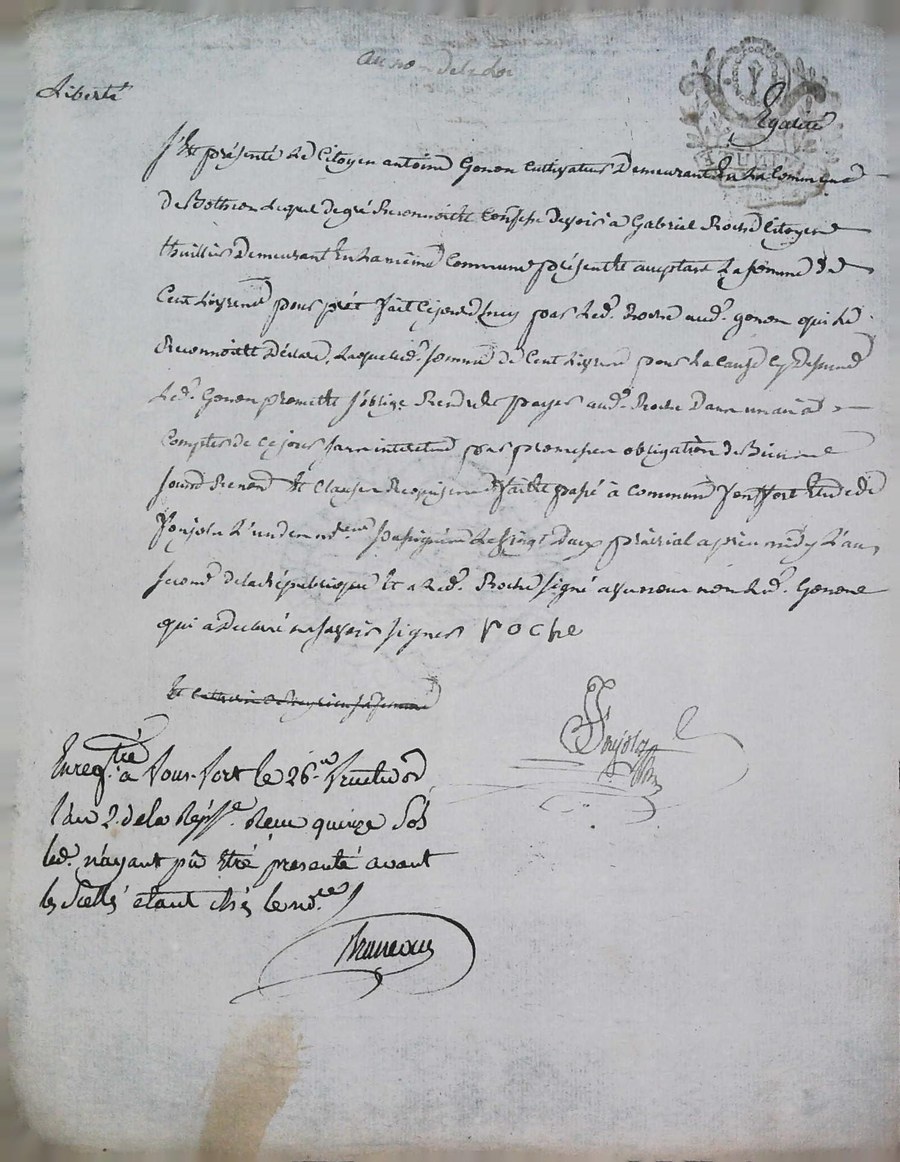 au nom de la Loi
Liberté
Egalité
S'Est présenté Le Citoyen antoine Gonon Cultivateur Demeurant En La Commune
de Lequel de gré Reconnoitt Confesse Devoir à Gabriel Roche Citoyen
thuillier Demeurant En La même Commune présent Et acceptant La somme de
Cent Livres pour prêt fait Cejourd'huy par Led. Roche aud. Gonon qui Le
Reconnoitt Déclare, Laquelle d. somme de Cent Livres pour La cause Cy Dessus
Led. Gonon promett S'oblige Rendre payer aud. Roche Dans un an à
Compter de Ce jour sans interet par promesse obligation de Biens
soum. Renon. Et Clauses Requises fait Et passé à Commune Fontfort Etude de
Foujols L'un des nore. soussigné Le Vingt Deux prairial après midy L'an
second de la République Et a Led. Roche signé avec nous non Led. Gonon
qui a Declaré ne savoir signer roche
Et sa femme
Foujols
Enregtré à Fons-Fort le 26 fructidor
l'an 2 de la Répe. Reçu quinze sols
led. n'ayant pû Etre presenté avant
les scellés étant chés le nore.
Bruneau